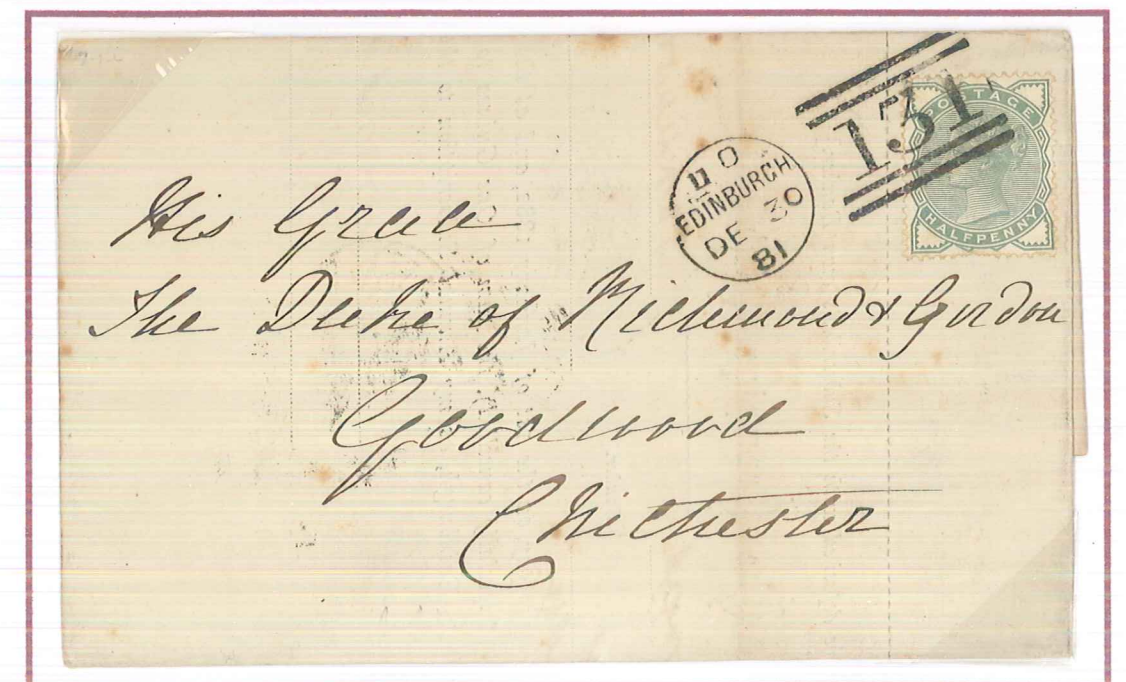 POSTAGE
131
HALFPENNY
O
EDINBURGH
DE 30
81
His Grace
The Duke of Richmond & Gordon
Goodwood
Chichester